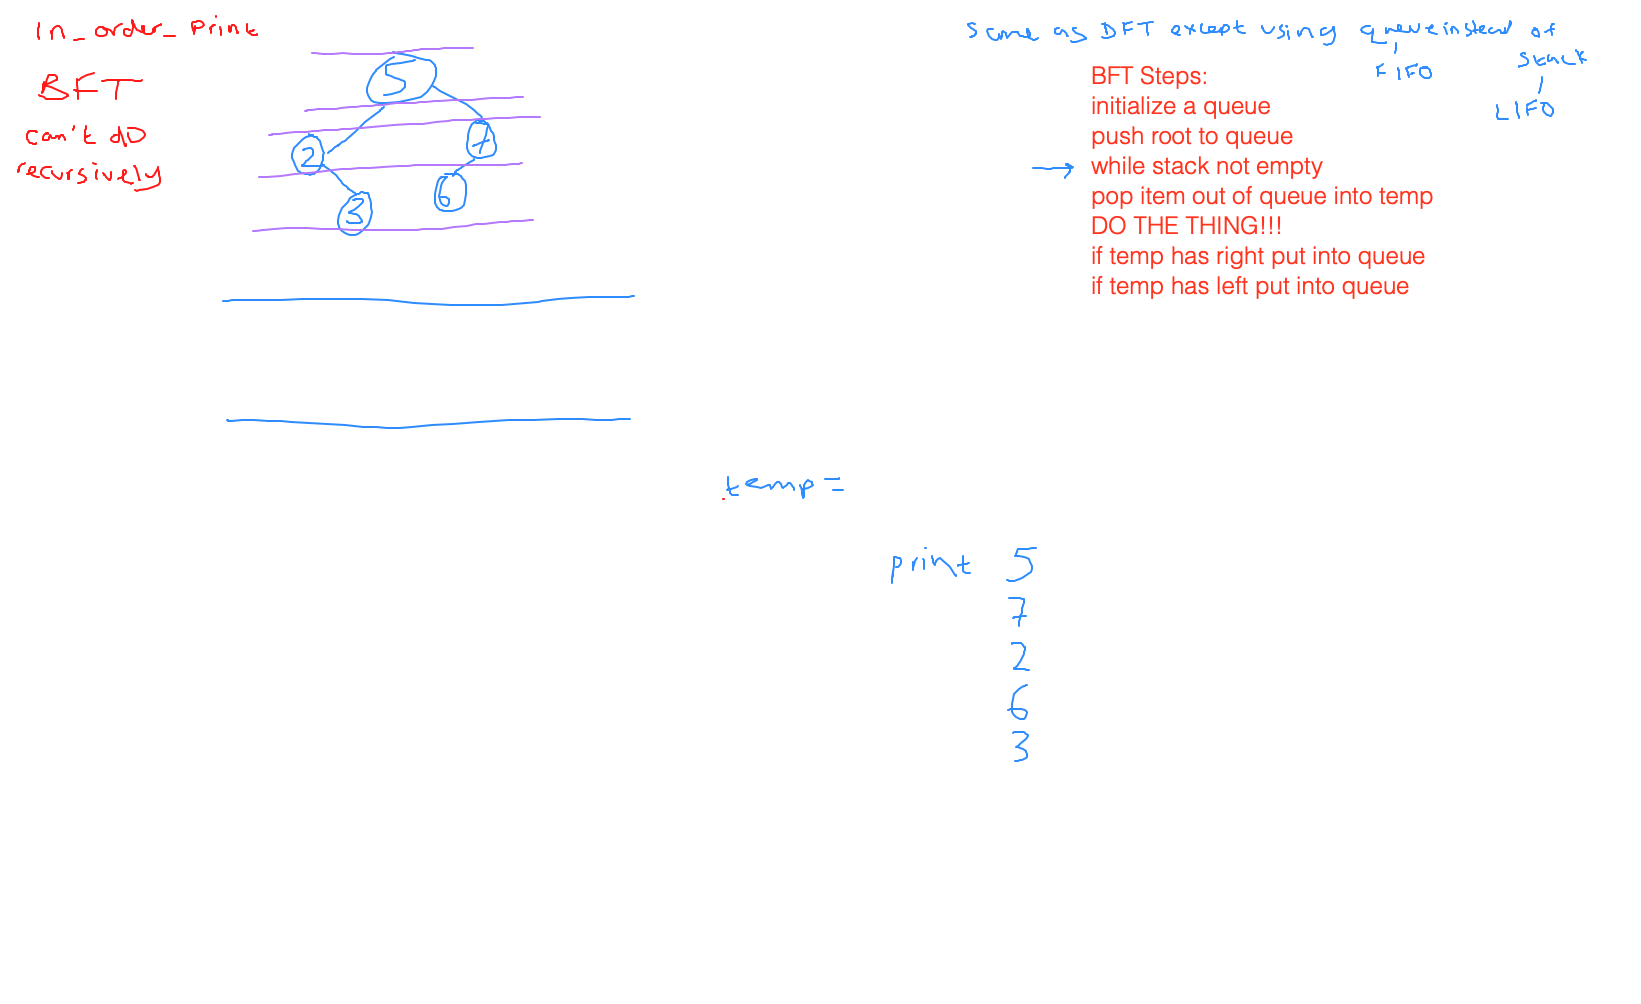 In_order_Print
BFT
can't do
recursively
5
2
7
3
6
Same as DFT except using queue instead of
stack
FIFO
LIFO
BFT Steps:
initialize a queue
push root to queue
while stack not empty
pop item out of queue into temp
DO THE THING!!!
if temp has right put into queue
if temp has left put into queue
temp =
print 5
7
2
6
3